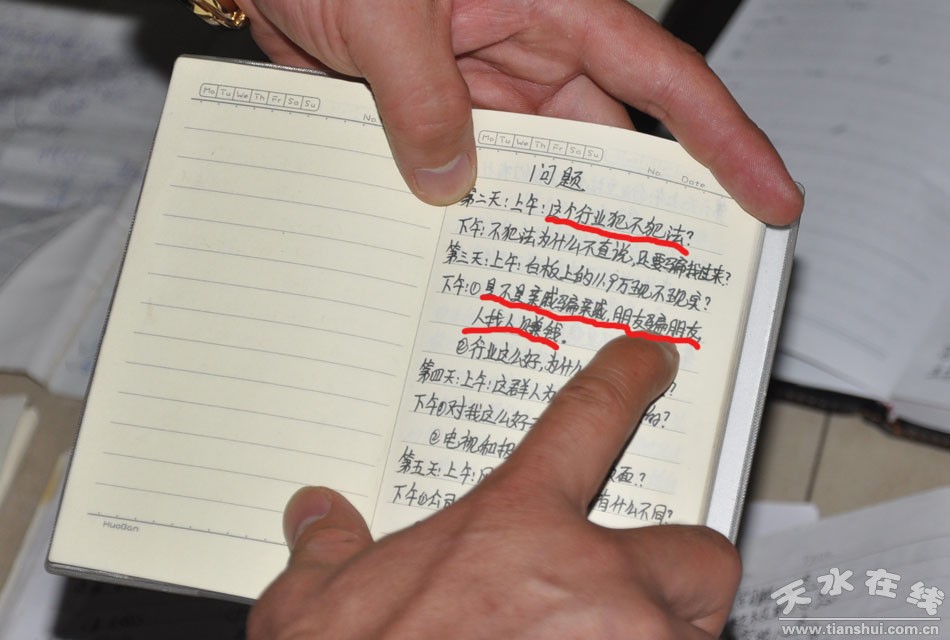 Mo Tu We Th Fr Sa Su
No.
Mo Tu We Th Fr Sa Su
No. Date
1问题
第二天:上午:这个行业犯不犯法?
下午:不犯法为什么不直说,还要骗我过来?
第三天:上午:白板上的11.9万现不现实?
下午:①是不是亲戚骗亲戚,朋友骗朋友,
人找人赚钱。
②行业这么好,为什么 ?
第四天:上午:这群人为 的?
下午①对我这么好
②电视和报
第五天:上午: 面?
下午①公司 有什么不同?
HuaBan
天水在线
www.tianshui.com.cn